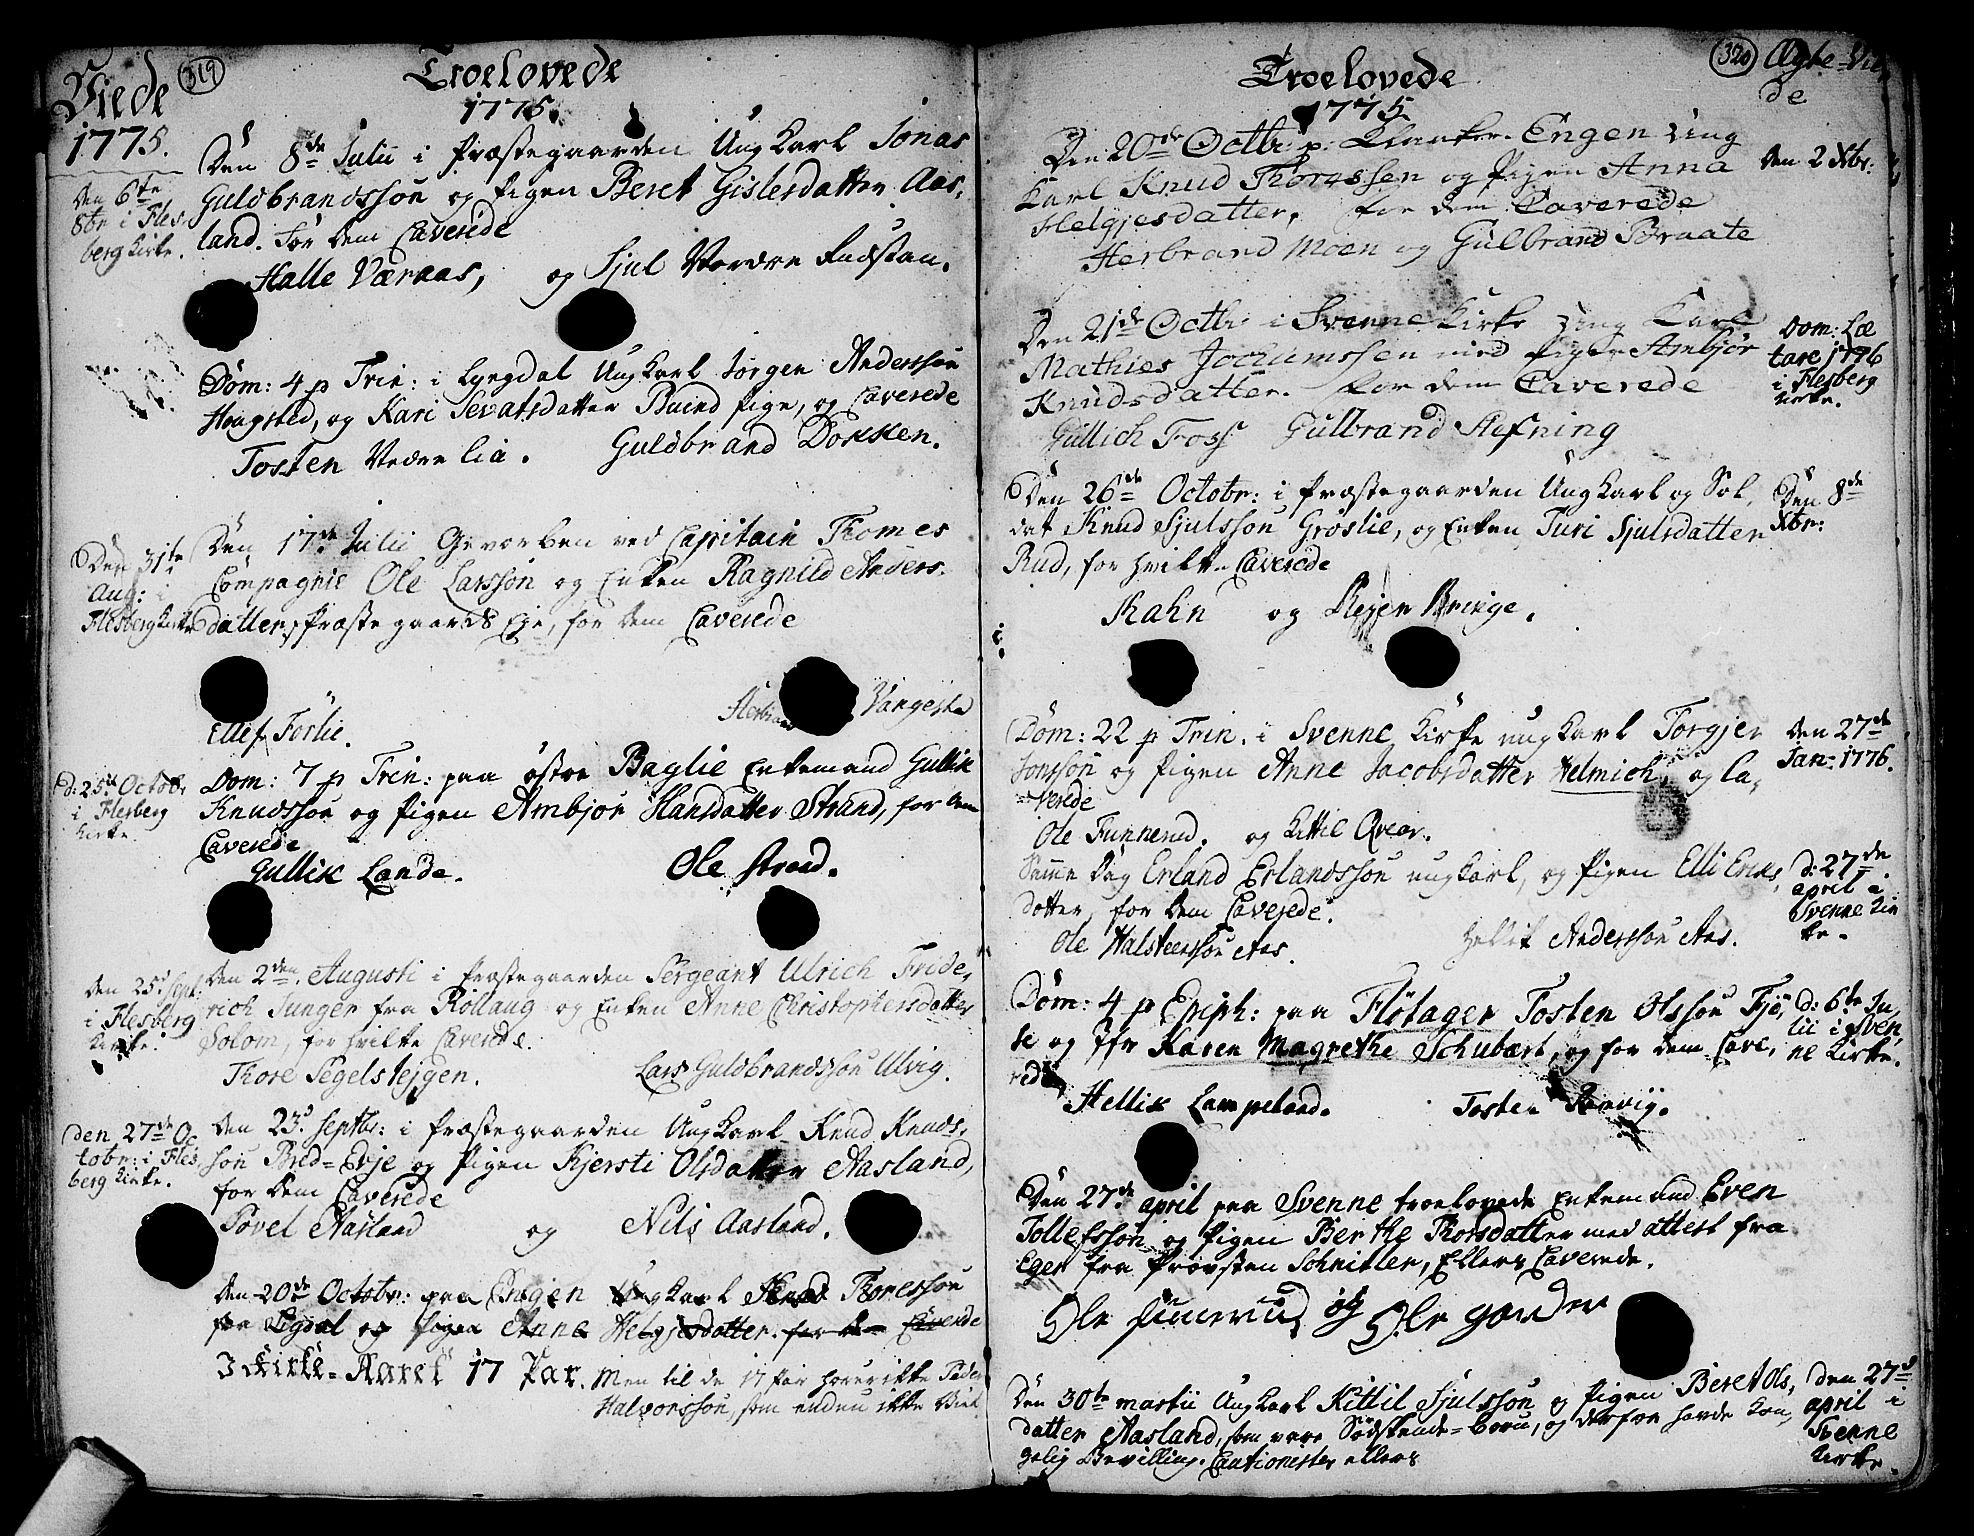 Viede
1775.
319
Troelovede
1775.
Den 8de Julii i Præstegaarden Ung Karl Jonas
Guldbrandssøn og Pigen Beret Gislesdatter Aas,
land. For dem Caverede
Halle Væraas, og Sjul Nordre Rudstan.
Den 6te
8br i Fles,
berg Kirke.
Dom: 4 p Trin: i Lyngdal Ung Karl Jørgen Anderssøn
Haagsted, og Kari Sevatsdatter Pige, og Caverede
Tosten Nedre Lia. Guldbrand Dokken.
Den 17de Julii Gevorben ved Capitain Thomes
Compagnie Ole Larssøn og Enken Ragnild Anders,
datter, Præstegaards Eje, for dem Caverede
Den 31te
Aug: i
Flesberg Kirke
Ellef Førlie. Vangestu
Dom: 7 p Trin: paa østre Baglie Enkemand Gullik
Knudssøn og Pigen Ambjør Hansdatter Strand, for dem
Caverede
Gullik Lande. Ole Strand.
d: 25de Octobr
i Flesberg
Kirke
Den 2den Augusti i Præstegaarden Sergeant Ulrich Fride,
rich Junger fra Rollaug og Enken Anne Christophersdatter
Solom, for hvilke Caverede.
Thore Segelstejgen. Lars Guldbrandssøn Ulvig.
Den 25d Sept:
i Flesberg
Kirke.
Den 23d Septbr: i Præstegaarden Ung Karl Knud Knuds,
søn Bred=Evje og Pigen Kjersti Olsdatter Aasland,
for dem Caverede
Povel Aasland og Nils Aasland.
den 27de Oc
tobr: i Fles,
berg Kirke.
Den 20de Octobr: paa Engen Ung Karl Knud Thoressøn
Sigdal og Pigen Anne Helgjesdatter for dem Caverede
I Kirke=Aaret 17 Par. Men til de 17 Par hører ikke Peder
Halvorssøn, som endnu ikke Viet
Troelovede
1775.
320
Ægte=Vie
de
Den 20de Octbr: p: Engen Ung
Karl Knud Thoressen og Pigen Anna
Helgjesdatter, for dem Caverede
Herbrand Moen og Gulbrand Braate
Den 2 Xbr.
Den 21de Octbr: i Svenne Kirke Ung Karl
Mathies Jochumssen med Pigen Ambjør
Knudsdatter. for dem Caverede
Gullich Foss Gulbrand Stefning
Dom: Læ
tare 1776
i Flesberg
Kirke.
Den 26de Octobr: i Præstegaarden Ung Karl og Sol,
dat Knud Sjulssøn Grøslie, og Enken Turi Sjulsdatter
Rud, for hvilke Caverede
Rahn og Rejer Bringe.
Den 8de
Xbr:
Dom: 22 p Trin. i Svenne Kirke ung Karl Torgjer
Jonssøn og Pigen Anne Jacobsdatter Helmich, og Ca,
verede
Ole Funnerud. og Kittil Qvar.
Den 27de
Jan: 1776.
Samme Dag Erland Erlandssøn ung Karl, og Pigen Elli Eriks,
datter, for dem Caverede.
Ole Halsteenssøn Aas. Hellik Anderssøn Aas.
d: 27de
april i
Svenne Kir
ke.
Dom: 4 p Epiph: paa Fløtager Tosten Olssøn Fjø,
se og Jfr Karen Magrethe Schubart, og for dem Cave,
rede
Hellik Lampeland. Tosten Ranvig.
d: 6te Ju,
lii i Sven,
ne Kirke.
Den 27de april paa Svenne troelovede Enkemand Even
Tollefssøn og Pigen Berthe Thorsdatter med attest fra
Eger fra Provsten Schnitler, Ellers Caverede.
Ole funerud og Ole garder
Den 30te martii Ung Karl Kittil Sjulssøn og Pigen Beret Ols,
datter Aasland, som vare Sødskende=børn, og derfor havde kon,
gelig Bevilling. Cautionister ellers
den 27d
april i
Svenne
Kirke.